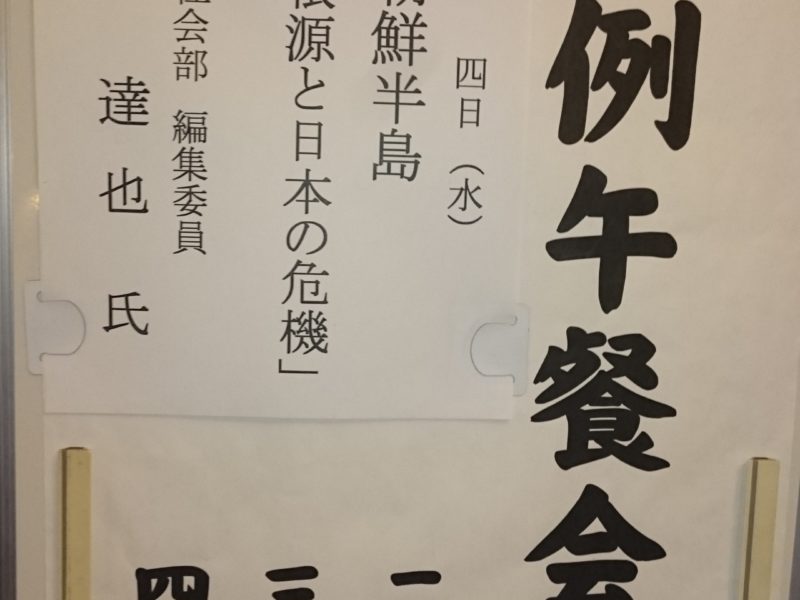 例午餐会
四日（水）
朝鮮半島
根源と日本の危機」
社会部 編集委員
達也氏
一
三
四